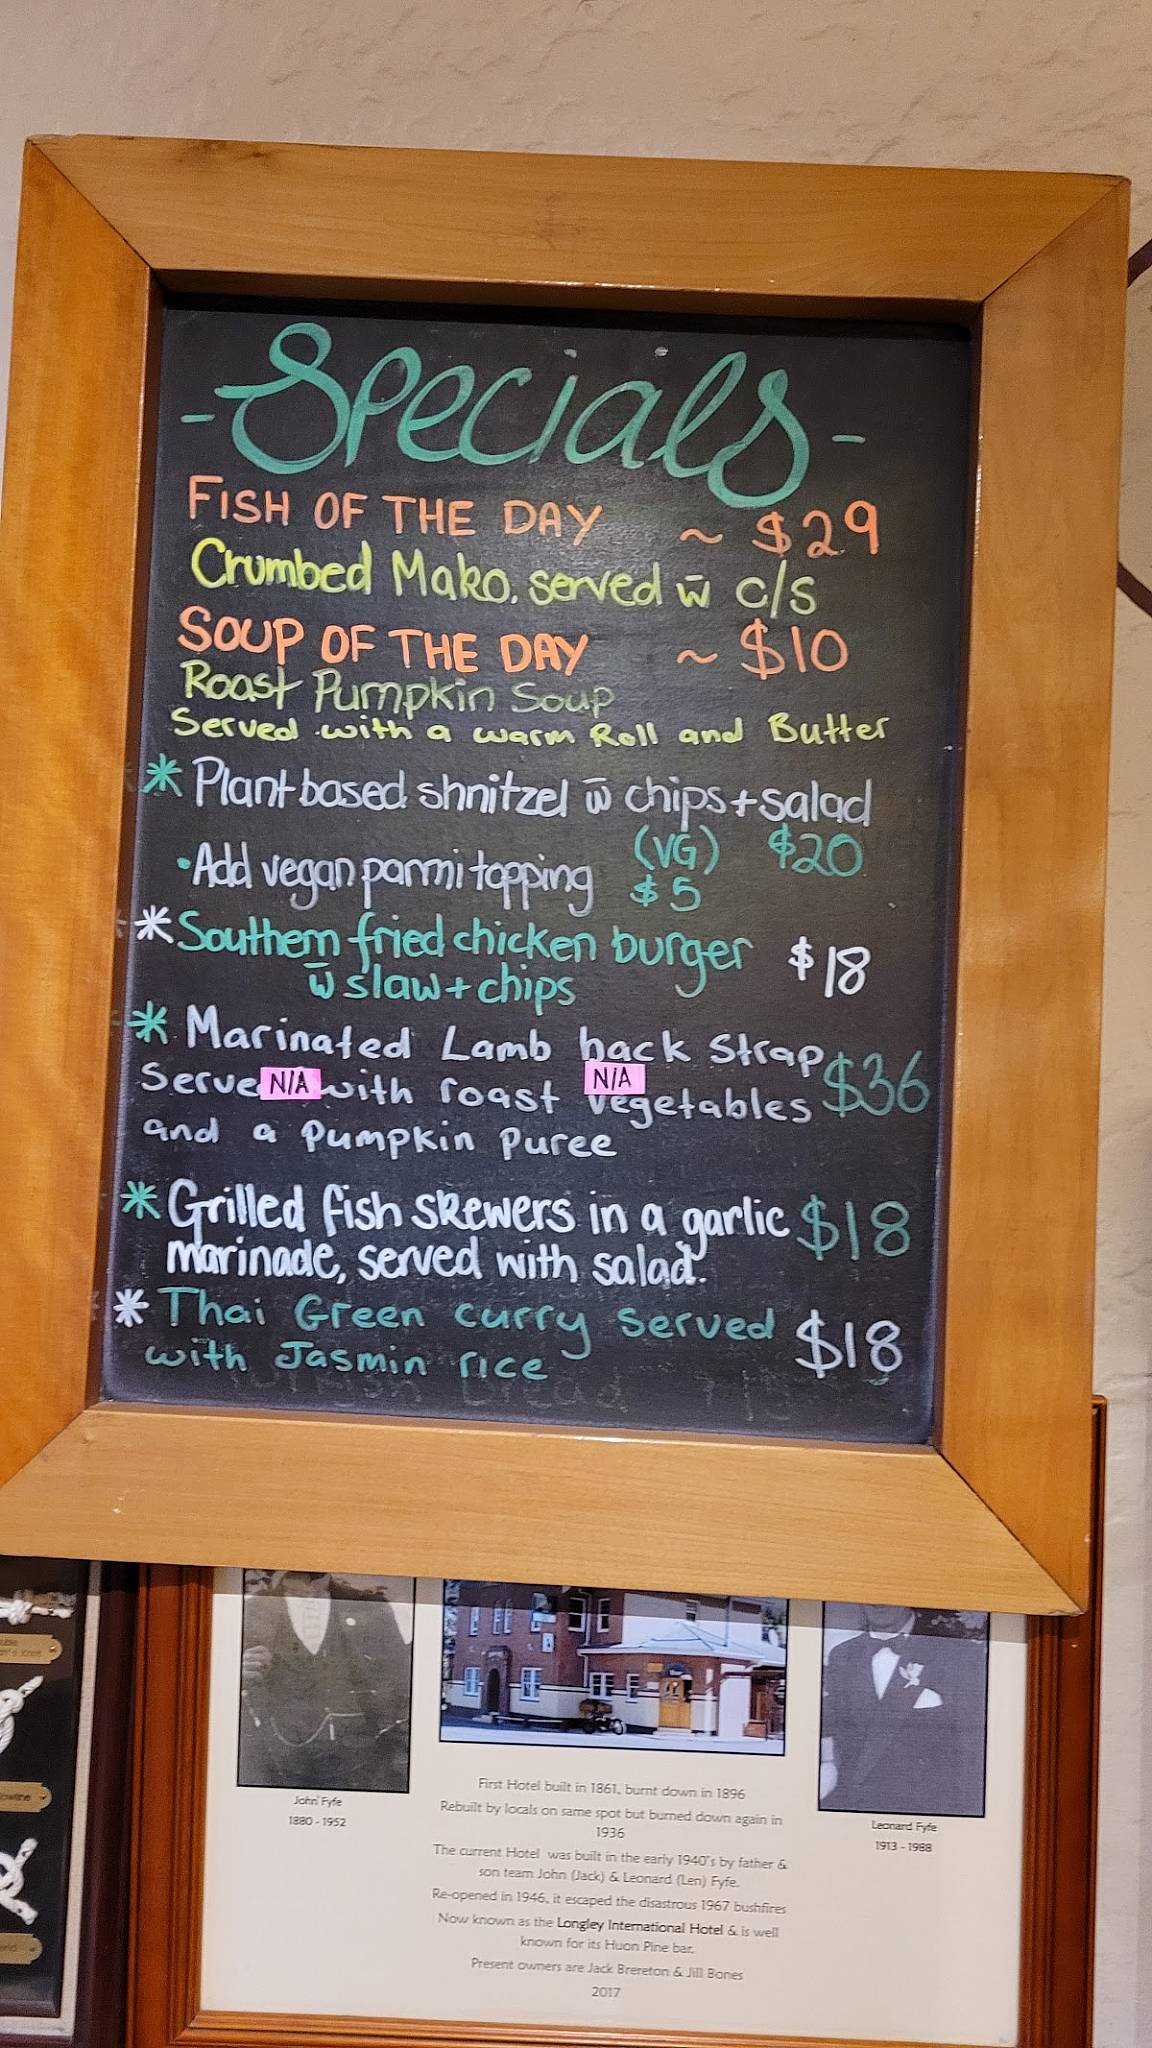 - Specials -
FISH OF THE DAY ~ $29
Crumbed Mako, served w̄ c/s
SOUP OF THE DAY ~ $10
Roast Pumpkin Soup
Served with a warm Roll and Butter
* Plant based shnitzel w̄ chips + salad
(VG) $20
• Add vegan parmi topping $5
* Southern fried chicken burger $18
w̄ slaw + chips
* Marinated Lamb back Strap $36
Serve N/A with roast N/A vegetables
and a pumpkin puree
* Grilled fish skewers in a garlic $18
marinade, served with salad.
* Thai Green curry served $18
with Jasmin rice
John Fyfe
1880 - 1952
First Hotel built in 1861, burnt down in 1896
Rebuilt by locals on same spot but burned down again in
1936
The current Hotel was built in the early 1940's by father &
son team John (Jack) & Leonard (Len) Fyfe.
Re-opened in 1946, it escaped the disastrous 1967 bushfires
Now known as the Longley International Hotel & is well
known for its Huon Pine bar.
Present owners are Jack Brereton & Jill Bones
2017
Leonard Fyfe
1913 - 1988